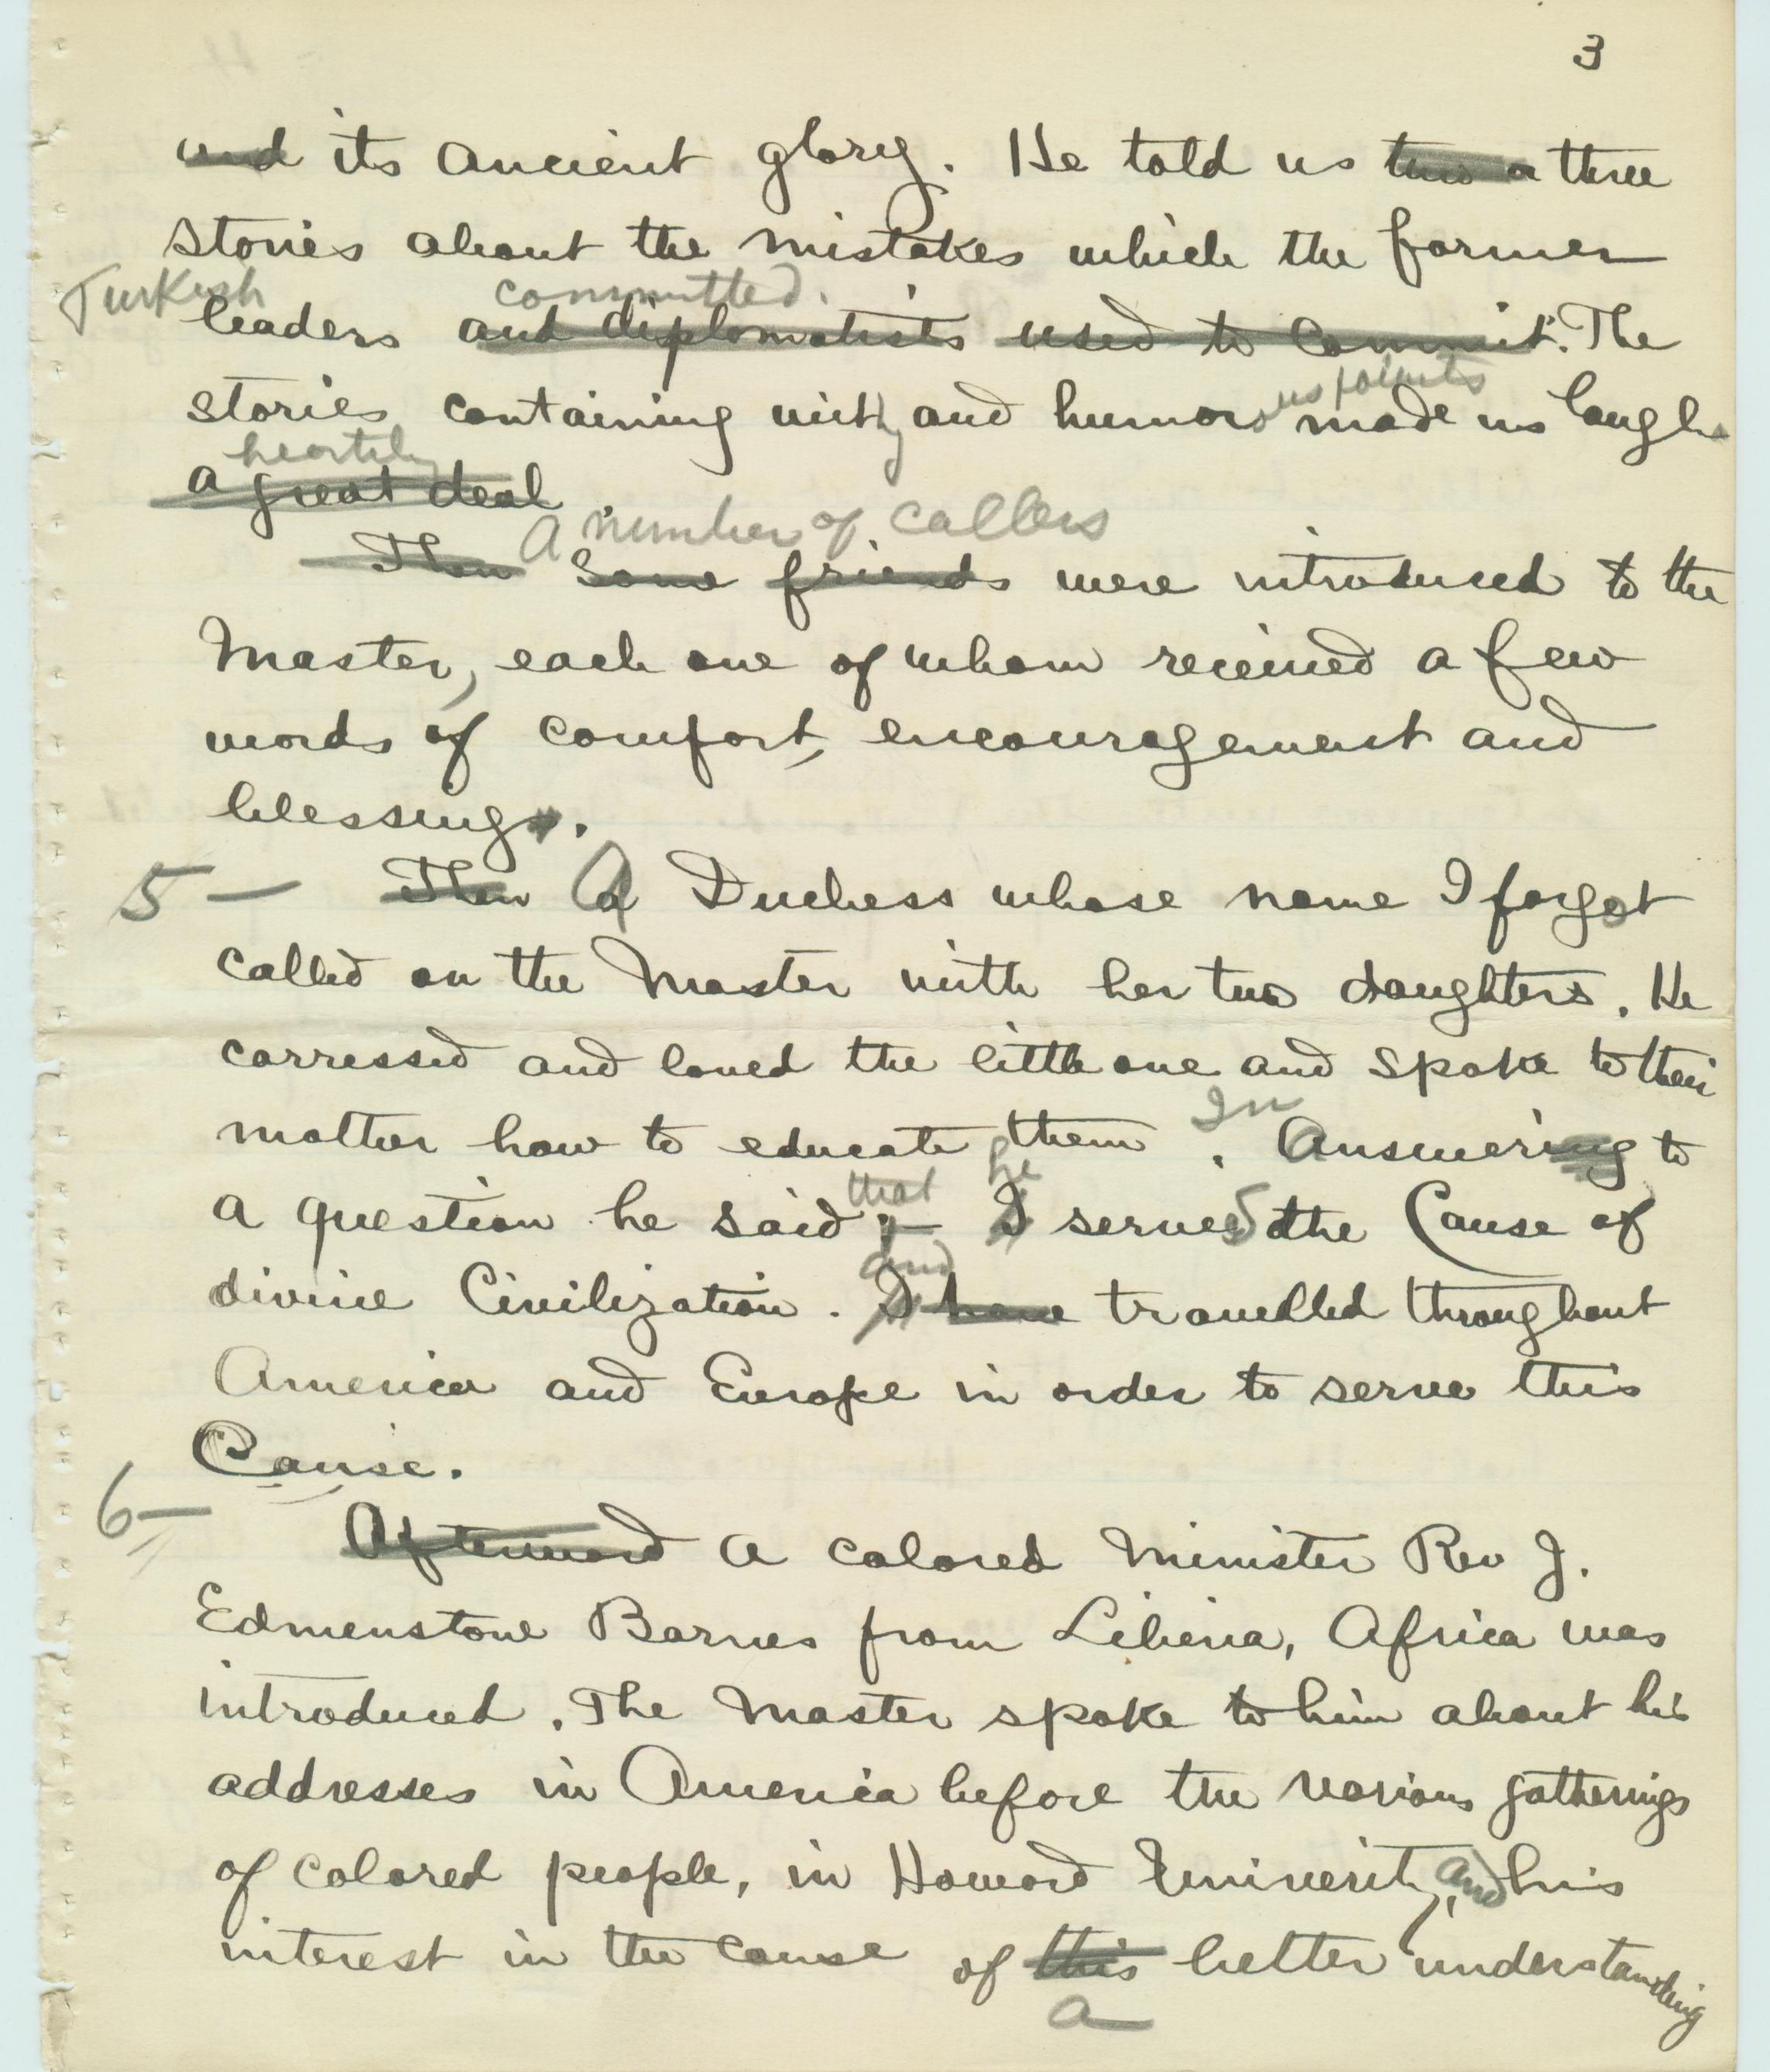 3
and its ancient glory. He told us two or three
stories about the mistakes which the former
Turkish committed.
leaders and diplomatists used to commit. The
us points
stories containing witty and humoro made us laugh
heartily
a great deal.
A number of callers
Then Some friends were introduced to the
Master, each one of whom received a few
words of comfort, encouragement and
blessing.
5 — Then A Duchess whose name I forgot
called on the Master with her two daughters. He
carressed and loved the little one and spoke to their
In
mother how to educate them. Answering to
that he
a question he said:— I served the Cause of
and
divine Civilization. I have travelled throughout
America and Europe in order to serve this
Cause.
6 —
Afterward a colored Minister Rev J.
Edmenstone Barnes from Liberia, Africa was
introduced. The Master spoke to him about his
addresses in America before the various gatherings
of colored people, in Howard Univerity, and his
interest in the cause of this better understanding
a